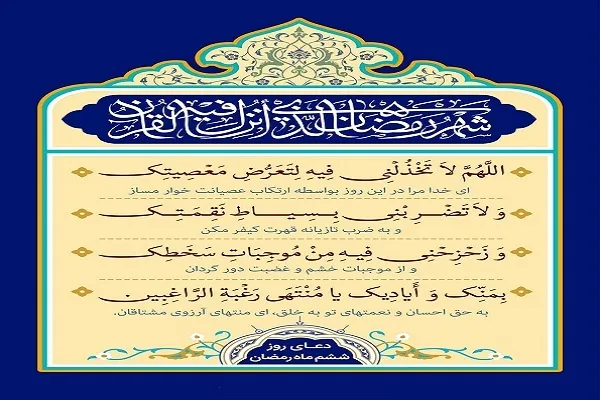 شَهْرُ رَمَضَانَ الَّذِي أُنْزِلَ فِيهِ الْقُرْآنُ
اللَّهُمَّ لاَ تَخْذُلْنِي فِيهِ لِتَعَرُّضِ مَعْصِيَتِكَ
ای خدا مرا در این روز بواسطه ارتکاب عصیانت خوار مساز
وَ لاَ تَضْرِبْنِي بِسِيَاطِ نَقِمَتِكَ
و به ضرب تازیانه قهرت کیفر مکن
وَ زَحْزِحْنِي فِيهِ مِنْ مُوجِبَاتِ سَخَطِكَ
و از موجبات خشم و غضبت دور گردان
بِمَنِّكَ وَ أَيَادِيكَ يَا مُنْتَهَى رَغْبَةِ الرَّاغِبِينَ
به حق احسان و نعمتهای تو به خلق، ای منتهای آرزوی مشتاقان.
دعای روز
ششم ماه رمضان